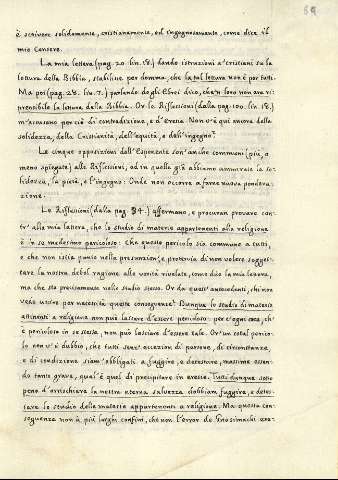 89
è scrivere solidamente, cristianamente, ed ingegnosamente, come dice il
mio Censore.
La mia lettera (pag. 20. lin. 18.) dando istruzioni a' cristiani su la
lettura della Bibbia, stabilisce per domma, che la tal lettura non è per tutti.
Ma poi (pag. 28. lin. 7.) parlando degli Ebrei dico, che 'n loro non era ri-
prensibile la lettura della Bibbia. Or le Riflessioni (dalla pag. 100. lin. 18.)
m'accusano perciò di contradizione, e d'eresia. Non v'è qui ancora della
solidezza, della Cristianità, dell'equità, e dell'ingegno?
Le cinque opposizioni dell'Esponente son' anche communi (più, o
meno spiegate) alle Riflessioni, ed in quelle già abbiamo ammirate la so-
lidezza, la pietà, e l'ingegno: Onde non occorre a farne nuova pondera-
zione.
Le Riflessioni (dalla pag. 84.) affermano, e procuran provare con-
tr' alla mia lettera, che lo studio di materie appartenenti alla religione
è in se medesimo pericoloso: Che questo pericolo sia commune a tutti,
e che non istia punto nella presunzione, e protervia di non volere sogget-
tare la nostra debol ragione alle verità rivelate, come dice la mia lettera,
ma che stia precisamente nello studio stesso. Or da questi antecedenti, chi non
vede uscire per necessità queste conseguenze? Dunque lo studio di materie
attinenti a religione non può lasciare d'essere pericoloso: perc'ogni cosa, ch'
è pericolosa in se stessa, non può lasciare d'essere tale. Or' un cotal perico-
lo non v'è dubbio, che tutti senz' accezion di persone, di circostanze,
e di condizione siam' obbligati a fuggire, e detestare, massime essen-
do tanto grave, qual è quel di precipitare in eresie. Tutti dunque sotto
pena d'arrischiare la nostra eterna salvezza dobbiam fuggire, e dete-
stare lo studio delle materie appartenenti a religione. Ma questa con-
seguenza non à più larghi confini, che non l'error de' Gnosimachi ana-